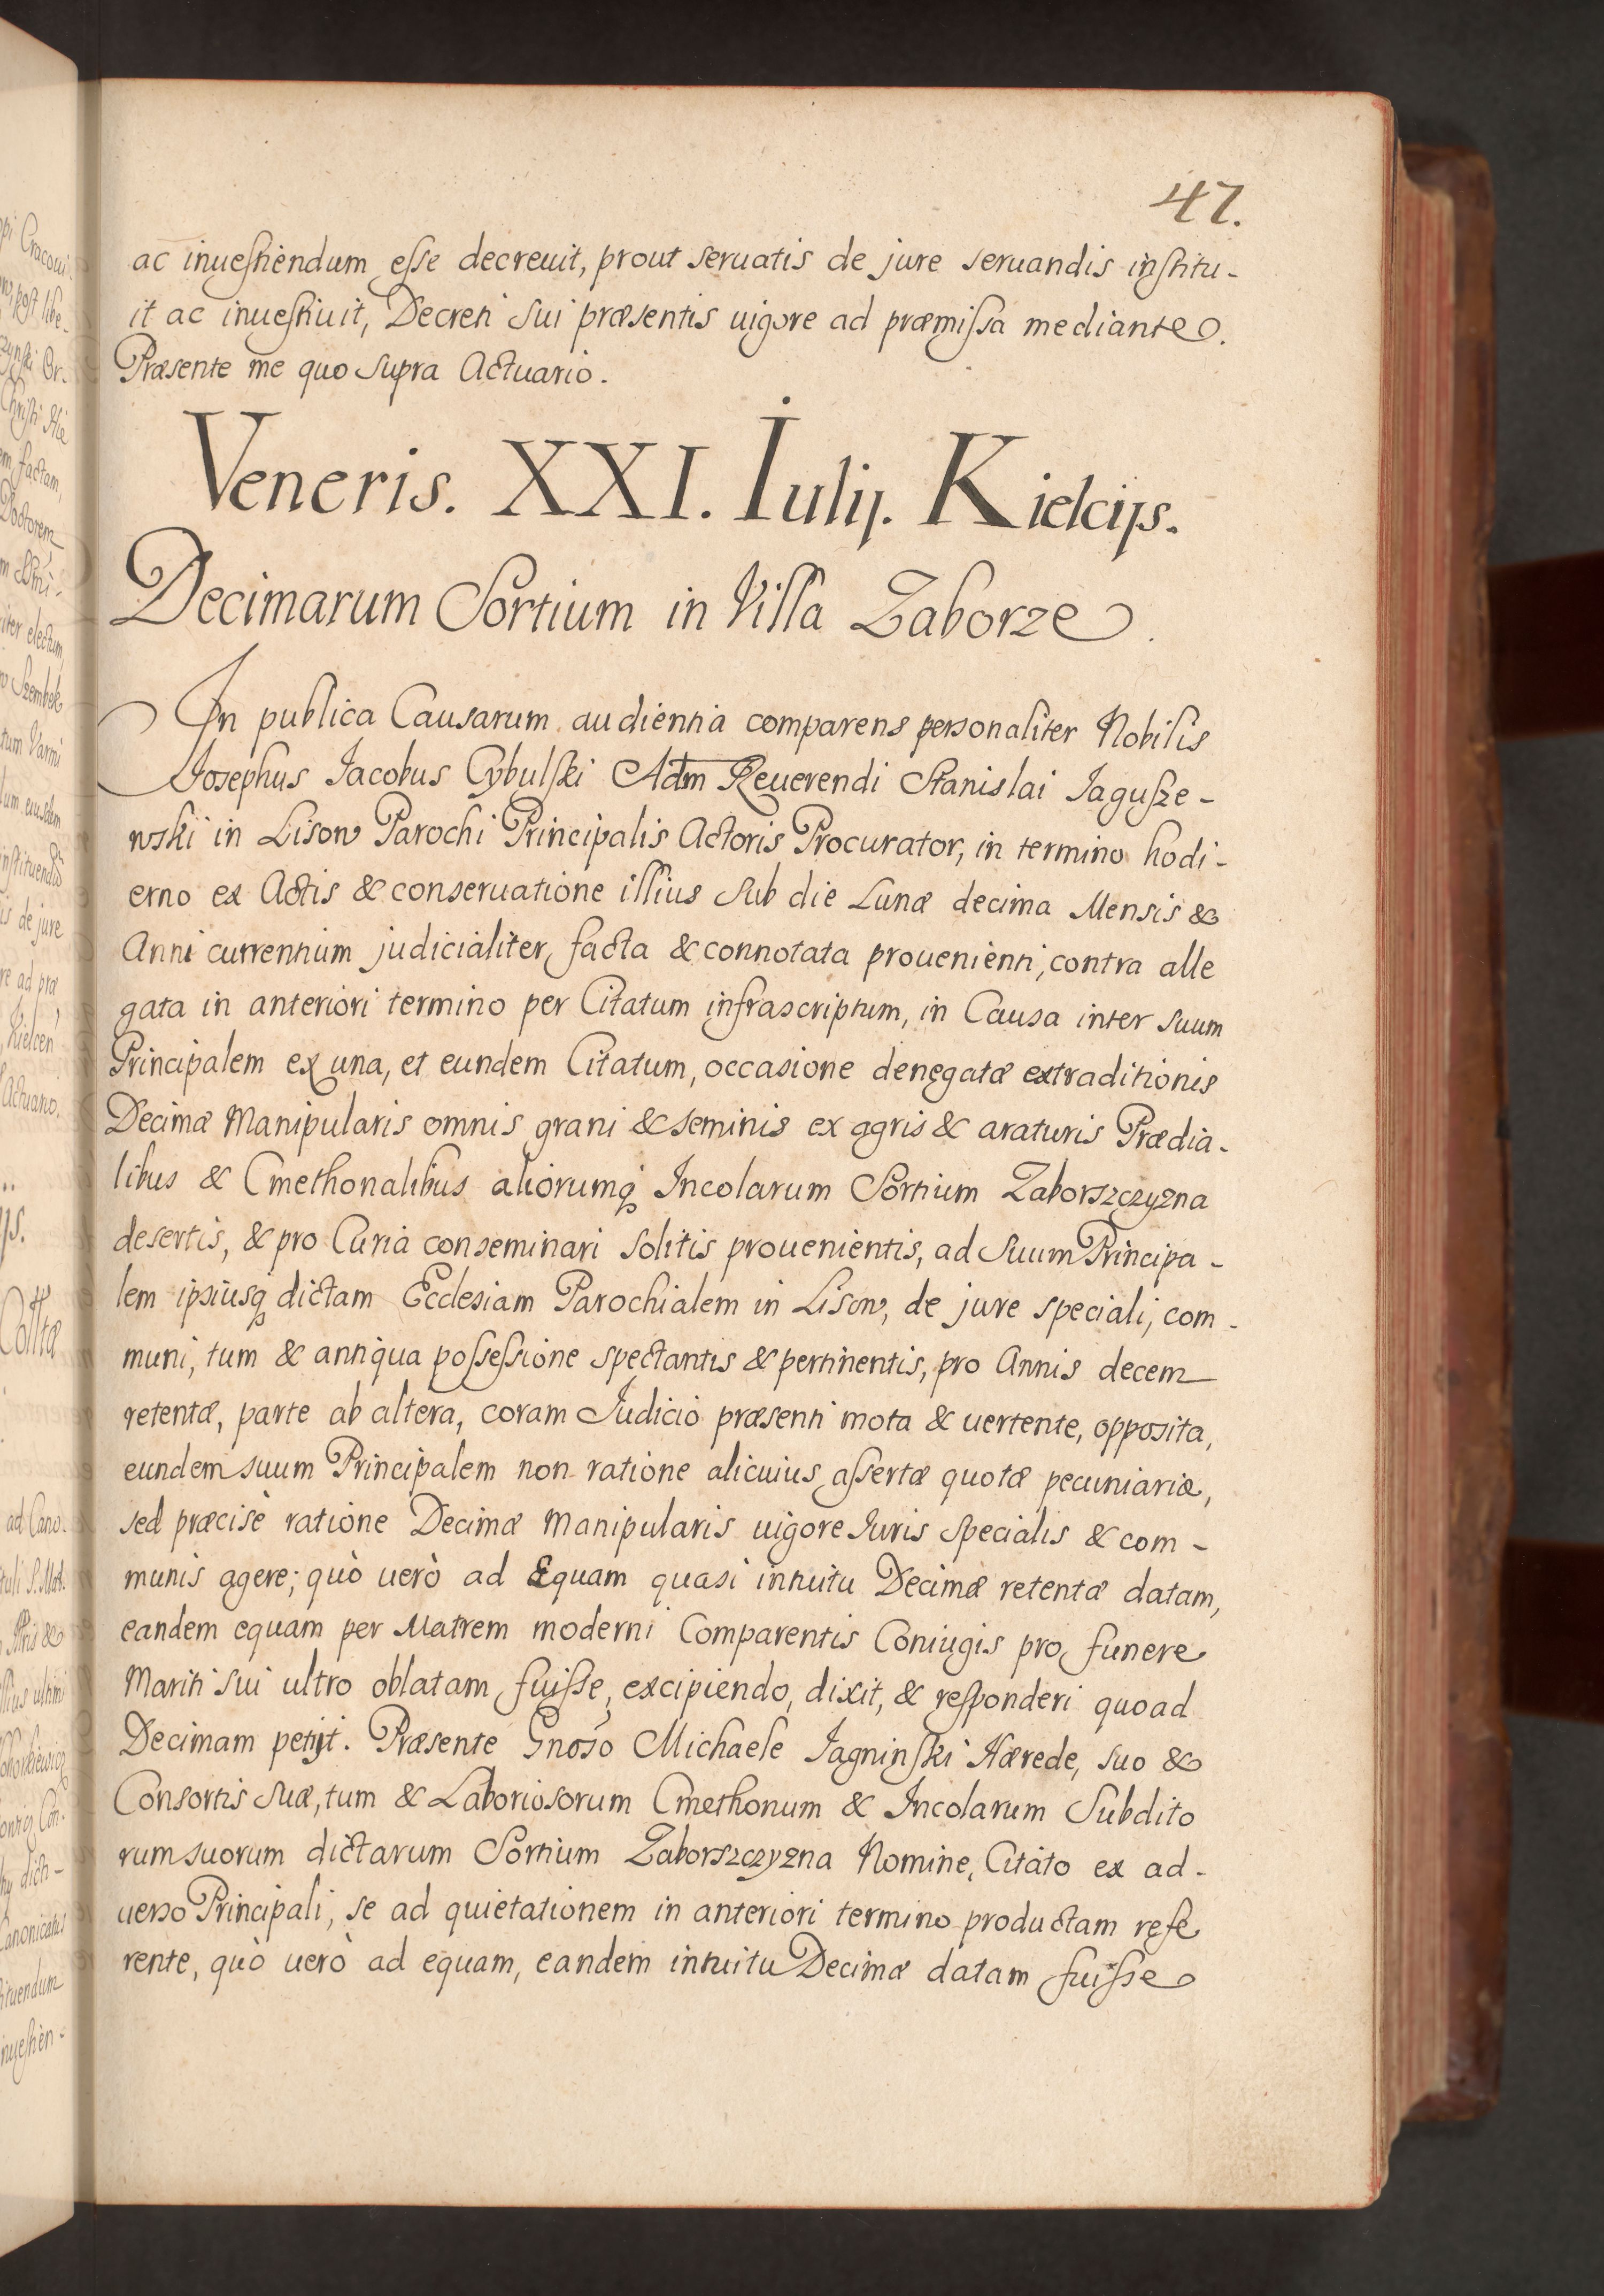 47.
ac inuestiendum esse decreuit, prout seruatis de jure seruandis institu-
it ac inuestiuit, Decreti sui præsentis uigore ad præmissa mediante.
Præsente me quo supra Actuario.
Veneris. XXI. Iulij. Kielcijs.
Decimarum Sortium in Villa Zaborze.
In publica Causarum audientia comparens personaliter Nobilis
Josephus Jacobus Cybulski Adm Reuerendi Stanislai Jagusze-
wski in Lisow Parochi Principalis Actoris Procurator, in termino hodi-
erno ex Actis & conseruatione illius sub die Lunæ decima Mensis &
Anni currentium judicialiter facta & connotata prouenienti, contra alle
gata in anteriori termino per Citatum infrascriptum, in Causa inter suum
Principalem ex una, et eundem Citatum, occasione denegatæ extraditionis
Decimæ Manipularis omnis grani & seminis ex agris & araturis Prædia-
libus & Cmethonalibus aliorumq Incolarum Sortium Zaborszczyzna
desertis, & pro Curia conseminari solitis prouenientis, ad suum Principa-
lem ipsiusq dictam Ecclesiam Parochialem in Lisow, de jure speciali, com-
muni, tum & antiqua possessione spectantis & pertinentis, pro Annis decem
retentæ, parte ab altera, coram Judicio præsenti mota & uertente, opposita,
eundem suum Principalem non ratione alicuius assertæ quotæ pecuniariæ,
sed præcisè ratione Decimæ Manipularis uigore Juris specialis & com-
munis agere; quò uerò ad Equam quasi intuitu Decimæ retentæ datam,
eandem equam per Matrem moderni Comparentis Coniugis pro funere
Mariti sui ultro oblatam fuisse, excipiendo, dixit, & responderi quoad
Decimam petijt. Præsente Gnoso Michaele Jagninski Hærede, suo &
Consortis suæ, tum & Laboriosorum Cmethonum & Incolarum Subdito
rum suorum dictarum Sortium Zaborszczyzna Nomine, Citato ex ad-
uerso Principali, se ad quietationem in anteriori termino productam refe
rente, quò uerò ad equam, eandem intuitu Decimæ datam fuisse